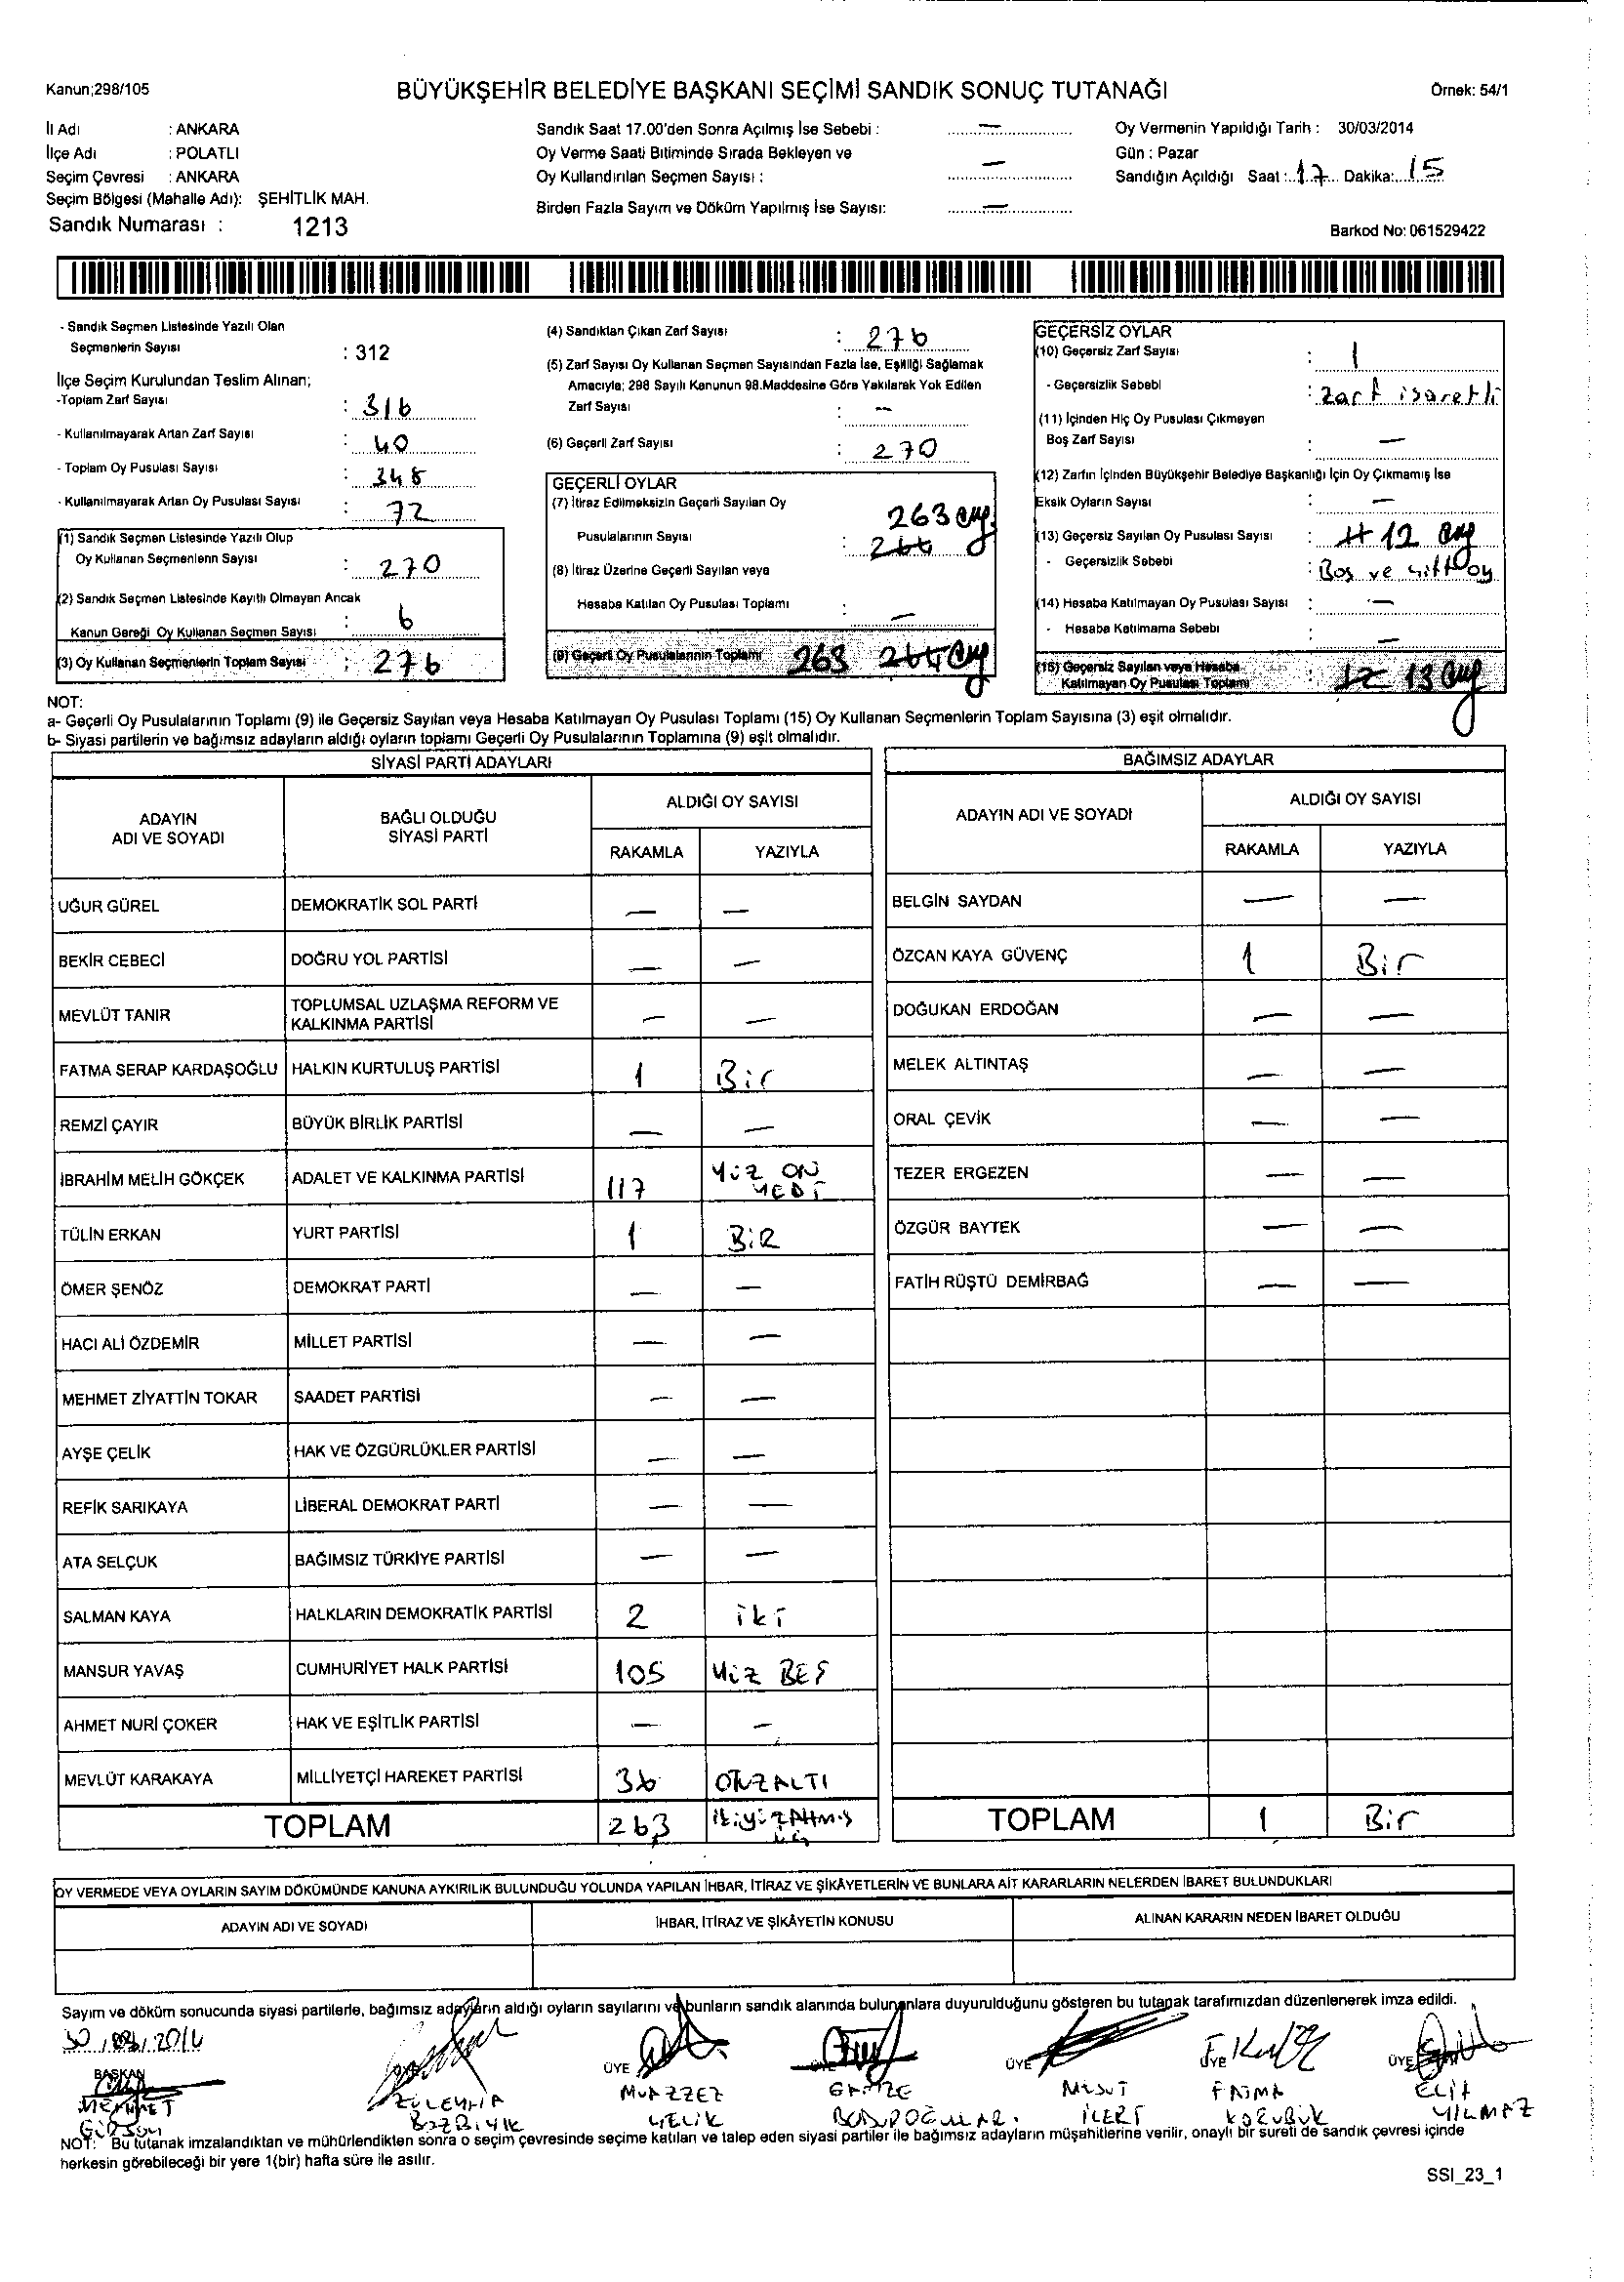 Kanun;298/105
BÜYÜKŞEHİR BELEDİYE BAŞKANI SEÇİMİ SANDIK SONUÇ TUTANAĞI
Örnek: 54/1
İl Adı : ANKARA
İlçe Adı : POLATLI
Seçim Çevresi : ANKARA
Seçim Bölgesi (Mahalle Adı): ŞEHİTLİK MAH.
Sandık Numarası : 1213
Sandık Saat 17.00'den Sonra Açılmış İse Sebebi : —
Oy Verme Saati Bitiminde Sırada Bekleyen ve
Oy Kullandırılan Seçmen Sayısı : —
Birden Fazla Sayım ve Döküm Yapılmış İse Sayısı: —
Oy Vermenin Yapıldığı Tarih : 30/03/2014
Gün : Pazar
Sandığın Açıldığı Saat : 17 Dakika: 15
Barkod No: 061529422
- Sandık Seçmen Listesinde Yazılı Olan
Seçmenlerin Sayısı : 312
İlçe Seçim Kurulundan Teslim Alınan;
-Toplam Zarf Sayısı : 316
- Kullanılmayarak Artan Zarf Sayısı : 40
- Toplam Oy Pusulası Sayısı : 348
- Kullanılmayarak Artan Oy Pusulası Sayısı : 72
(1) Sandık Seçmen Listesinde Yazılı Olup
Oy Kullanan Seçmenlerin Sayısı : 270
(2) Sandık Seçmen Listesinde Kayıtlı Olmayan Ancak
Kanun Gereği Oy Kullanan Seçmen Sayısı : 6
(3) Oy Kullanan Seçmenlerin Toplam Sayısı : 276
(4) Sandıktan Çıkan Zarf Sayısı : 276
(5) Zarf Sayısı Oy Kullanan Seçmen Sayısından Fazla İse, Eşitliği Sağlamak
Amacıyla; 298 Sayılı Kanunun 98.Maddesine Göre Yakılarak Yok Edilen
Zarf Sayısı : —
(6) Geçerli Zarf Sayısı : 270
GEÇERLİ OYLAR
(7) İtiraz Edilmeksizin Geçerli Sayılan Oy
Pusulalarının Sayısı : 263 264
(8) İtiraz Üzerine Geçerli Sayılan veya
Hesaba Katılan Oy Pusulası Toplamı : —
(9) Geçerli Oy Pusulalarının Toplamı 263 264
GEÇERSİZ OYLAR
(10) Geçersiz Zarf Sayısı : 1
- Geçersizlik Sebebi : Zarf isaretli
(11) İçinden Hiç Oy Pusulası Çıkmayan
Boş Zarf Sayısı : —
(12) Zarfın İçinden Büyükşehir Belediye Başkanlığı İçin Oy Çıkmamış İse
Eksik Oyların Sayısı : —
(13) Geçersiz Sayılan Oy Pusulası Sayısı : 11 12
- Geçersizlik Sebebi : Boş ve çift oy
(14) Hesaba Katılmayan Oy Pusulası Sayısı : —
- Hesaba Katılmama Sebebi : —
(15) Geçersiz Sayılan veya Hesaba
Katılmayan Oy Pusulası Toplamı : 12 13
NOT:
a- Geçerli Oy Pusulalarının Toplamı (9) ile Geçersiz Sayılan veya Hesaba Katılmayan Oy Pusulası Toplamı (15) Oy Kullanan Seçmenlerin Toplam Sayısına (3) eşit olmalıdır.
b- Siyasi partilerin ve bağımsız adayların aldığı oyların toplamı Geçerli Oy Pusulalarının Toplamına (9) eşit olmalıdır.
SİYASİ PARTİ ADAYLARI
ADAYIN ADI VE SOYADI BAĞLI OLDUĞU SİYASİ PARTİ ALDIĞI OY SAYISI
RAKAMLA YAZIYLA
UĞUR GÜREL DEMOKRATİK SOL PARTİ — —
BEKİR CEBECİ DOĞRU YOL PARTİSİ — —
MEVLÜT TANIR TOPLUMSAL UZLAŞMA REFORM VE KALKINMA PARTİSİ — —
FATMA SERAP KARDAŞOĞLU HALKIN KURTULUŞ PARTİSİ 1 Bir
REMZİ ÇAYIR BÜYÜK BİRLİK PARTİSİ — —
İBRAHİM MELİH GÖKÇEK ADALET VE KALKINMA PARTİSİ 117 Yüz ON YEDİ
TÜLİN ERKAN YURT PARTİSİ 1 BİR
ÖMER ŞENÖZ DEMOKRAT PARTİ — —
HACI ALİ ÖZDEMİR MİLLET PARTİSİ — —
MEHMET ZİYATTİN TOKAR SAADET PARTİSİ — —
AYŞE ÇELİK HAK VE ÖZGÜRLÜKLER PARTİSİ — —
REFİK SARIKAYA LİBERAL DEMOKRAT PARTİ — —
ATA SELÇUK BAĞIMSIZ TÜRKİYE PARTİSİ — —
SALMAN KAYA HALKLARIN DEMOKRATİK PARTİSİ 2 iki
MANSUR YAVAŞ CUMHURİYET HALK PARTİSİ 105 Yüz BEŞ
AHMET NURİ ÇOKER HAK VE EŞİTLİK PARTİSİ — —
MEVLÜT KARAKAYA MİLLİYETÇİ HAREKET PARTİSİ 36 OTUZALTI
TOPLAM 263 ikiyüzAltmış üç
BAĞIMSIZ ADAYLAR
ADAYIN ADI VE SOYADI ALDIĞI OY SAYISI
RAKAMLA YAZIYLA
BELGİN SAYDAN — —
ÖZCAN KAYA GÜVENÇ 1 Bir
DOĞUKAN ERDOĞAN — —
MELEK ALTINTAŞ — —
ORAL ÇEVİK — —
TEZER ERGEZEN — —
ÖZGÜR BAYTEK — —
FATİH RÜŞTÜ DEMİRBAĞ — —
TOPLAM 1 Bir
OY VERMEDE VEYA OYLARIN SAYIM DÖKÜMÜNDE KANUNA AYKIRILIK BULUNDUĞU YOLUNDA YAPILAN İHBAR, İTİRAZ VE ŞİKÂYETLERİN VE BUNLARA AİT KARARLARIN NELERDEN İBARET BULUNDUKLARI
ADAYIN ADI VE SOYADI İHBAR, İTİRAZ VE ŞİKÂYETİN KONUSU ALINAN KARARIN NEDEN İBARET OLDUĞU
Sayım ve döküm sonucunda siyasi partilerle, bağımsız adayların aldığı oyların sayılarını ve bunların sandık alanında bulunanlara duyurulduğunu gösteren bu tutanak tarafımızdan düzenlenerek imza edildi.
30/03/2014
BAŞKAN ÜYE ÜYE ÜYE ÜYE ÜYE
MEHMET ZÜLEYHA MUAZZEZ GAMZE MESUT FATMA ELİF
BOZBIYIK ÇELİK İLERİ YILMAZ
NOT: Bu tutanak imzalandıktan ve mühürlendikten sonra o seçim çevresinde seçime katılan ve talep eden siyasi partiler ile bağımsız adayların müşahitlerine verilir, onaylı bir sureti de sandık çevresi içinde
herkesin görebileceği bir yere 1(bir) hafta süre ile asılır.
SSI_23_1